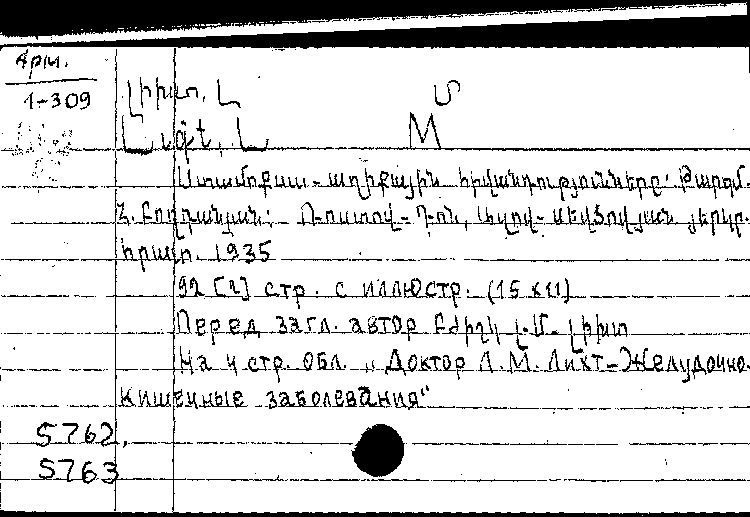 Арм.
1-309
Լիխտ, Լ Մ
M
Ստամոքսա-աղիքային հիվանդությունները: Թարգմ.
Հ. Բողդանյան: Ռոստով-Դոն, Ազով-սեվծովյան յերկր.
հրատ. 1935
92 [2] стр. с иллюстр. (15×11)
Перед загл. автор Բժիշկ Լ.Մ. Լիխտ
На 4 стр. обл. „Доктор Л.М. Лихт-Желудочно-
кишечные заболевания"
5762,
5763